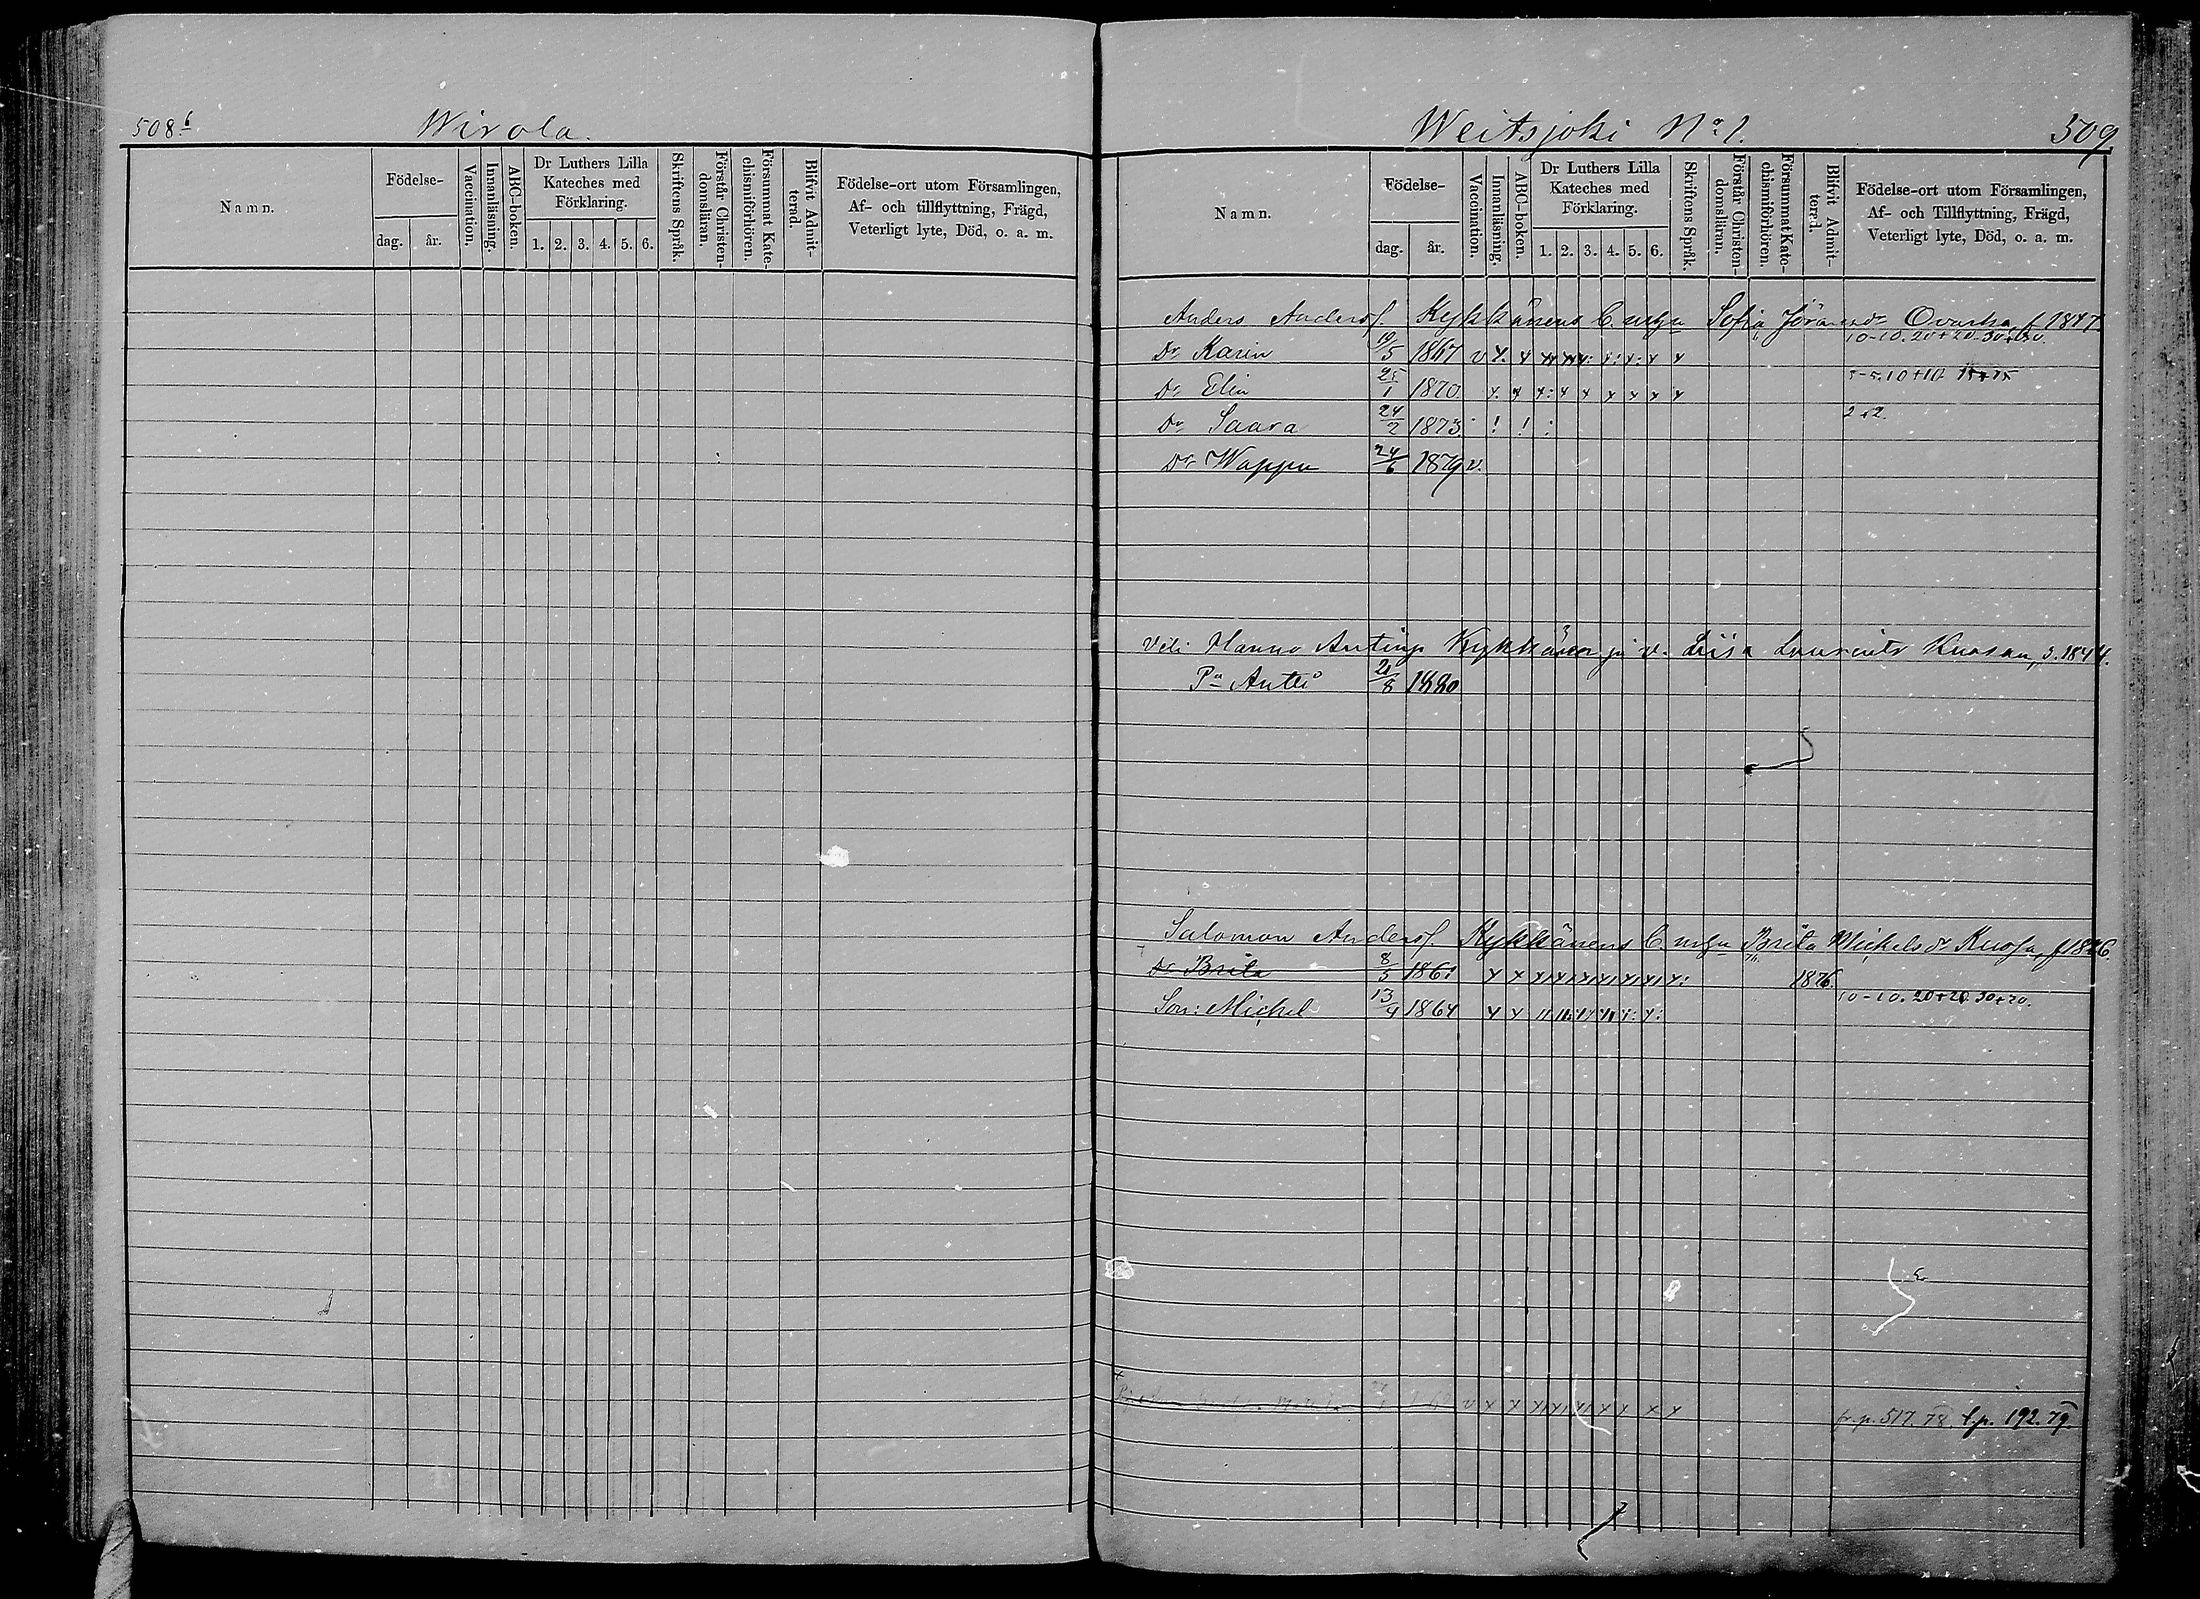 508 b
Wirola.
Namn.
Födelse-
dag.
år.
Vaccination.
Innanläsning.
ABC-boken.
Dr Luthers Lilla
Kateches med
Förklaring.
1. 2. 3. 4. 5. 6.
Skriftens Språk.
Förstår Christen-
domsläran.
Försummat Kate-
chismiförhören.
Blifvit Admit-
terad.
Födelse-ort utom Församlingen,
Af- och tillflyttning, Frägd,
Veterligt lyte, Död, o. a. m.
Weitsjoki No 1.
509
Namn.
Födelse-
dag.
år.
Vaccination.
Innanläsning.
ABC-boken.
Dr Luthers Lilla
Kateches med
Förklaring.
1. 2. 3. 4. 5. 6.
Skriftens Språk.
Förstår Christen-
domsläran.
Försummat Kate-
chismiförhören.
Blifvit Admit-
terad.
Födelse-ort utom Församlingen,
Af- och Tillflyttning, Frägd,
Veterligt lyte, Död, o. a. m.
Anders Anderss. Kykkänens C. m. h. Sofia Jöransdr Ovaska f 1847
Dr Karin 1867 v x. x 10-10. 20+20. 30+30.
Dr Elin 25/1 1870. 5-5. 10+10 15+15
Dr Saara 24/2 1873. ! ! : 2+2.
Dr Wappu 24/6 1879 v.
Hannu Antinp. Kykkänen ja v. Liisa Lauritr Kuosan, s. 1844.
Pa Antti 1880
Salomon Anderss. Kykkänens C. m. h. Brita Michelsdr f 1826.
Dr Brita 8/5 1861 1876.
Son: Michel 13/4 1864 10-10. 20+20. 30+20.
fr. p. 517. 78. t. p. 192. 79.